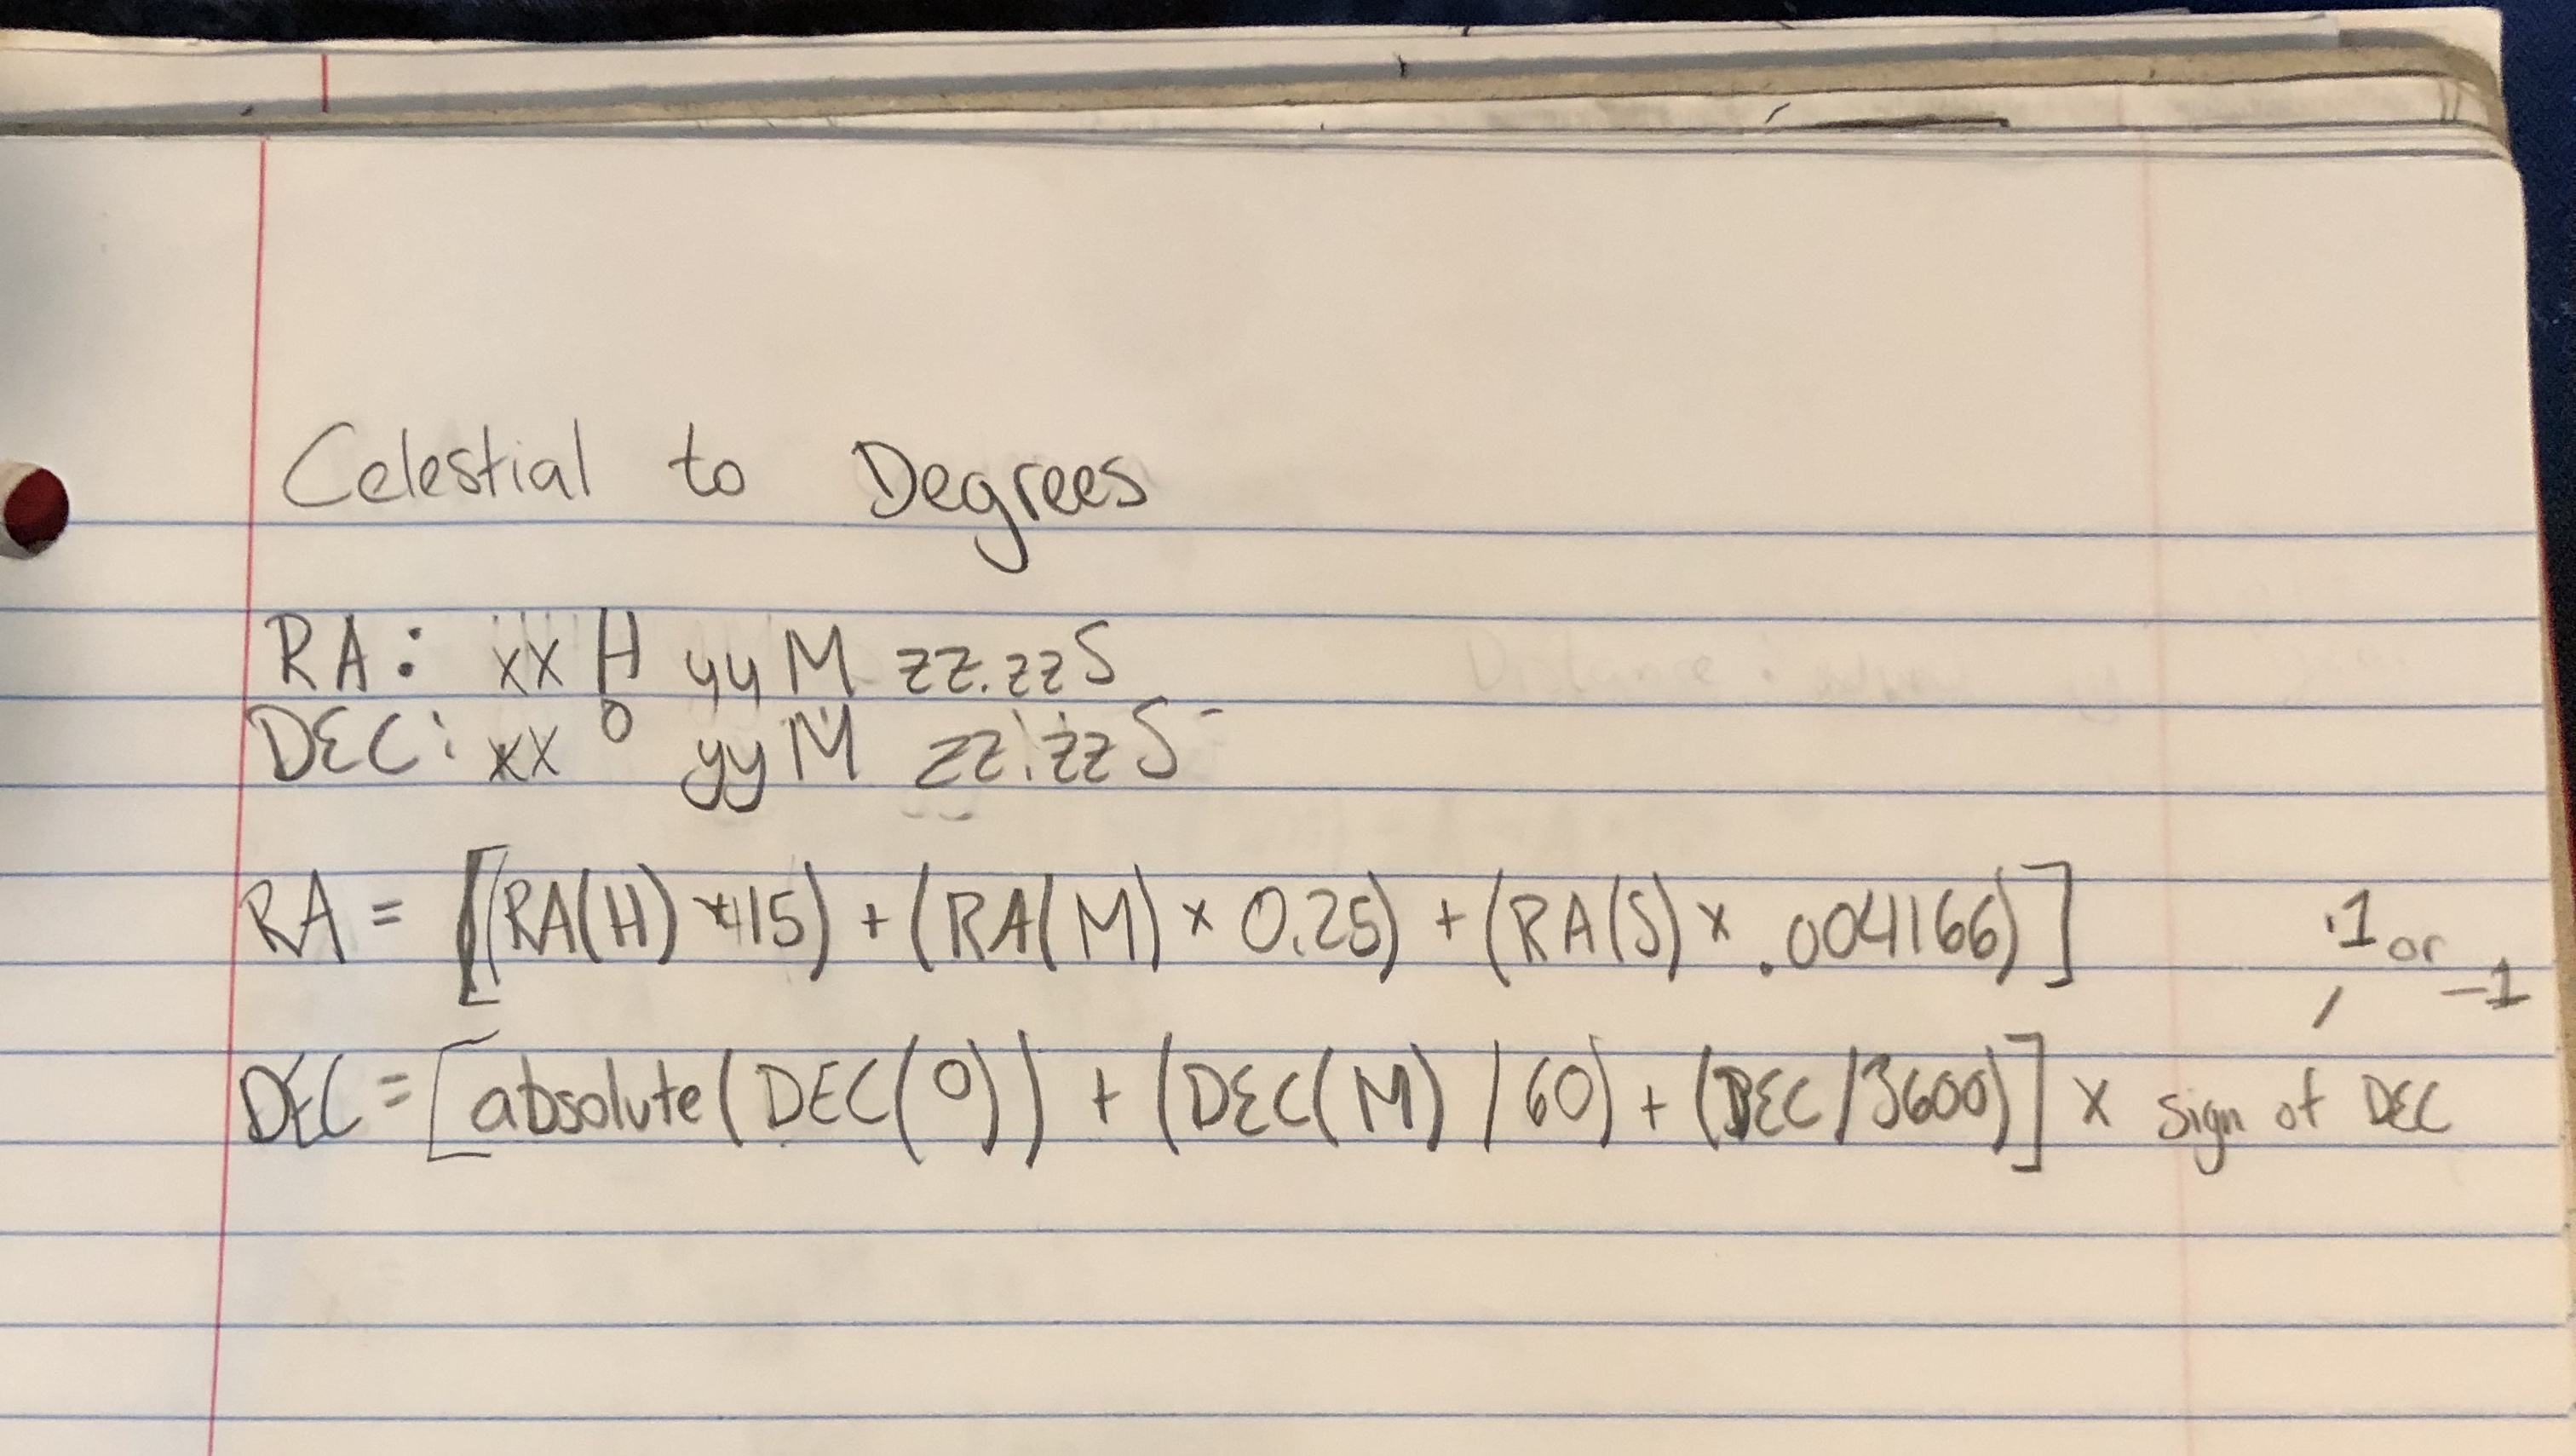 Celestial to Degrees
RA: xx H yy M zz.zz S
DEC: xx ° yy M zz.zz S
RA = [(RA(H) × 15) + (RA(M) × 0.25) + (RA(S) × .004166)]
1 or -1
DEC = [absolute(DEC(°)) + (DEC(M) / 60) + (DEC/3600)] × sign of DEC